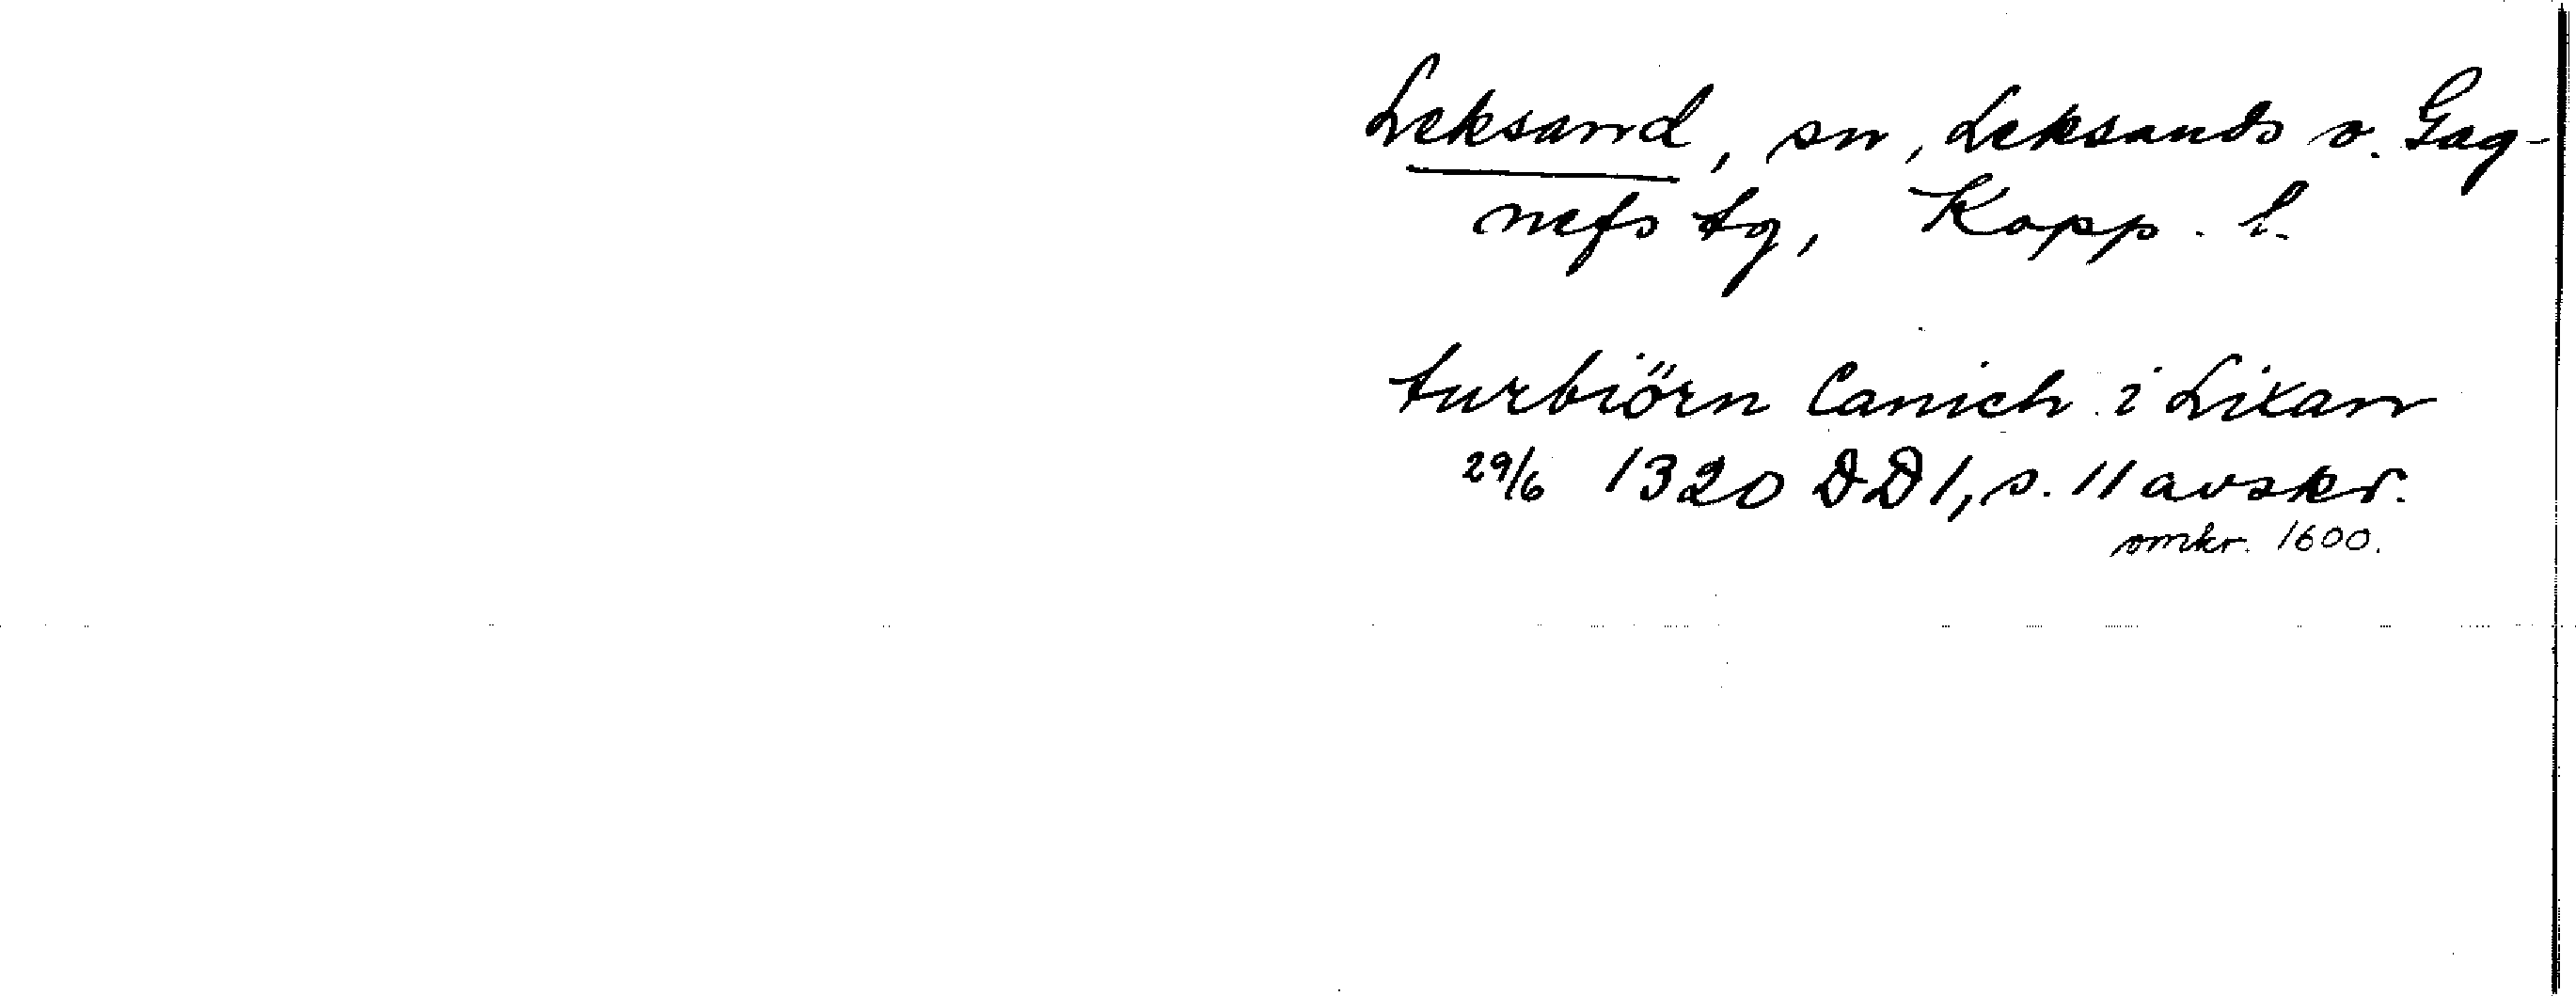 Leksand, sn, Leksands o. Gag-
nefs tg, Kopp. l.
turbiörn Canich i Lixan
29/6 1320 DD 1, s. 11 avskr.
omkr. 1600.